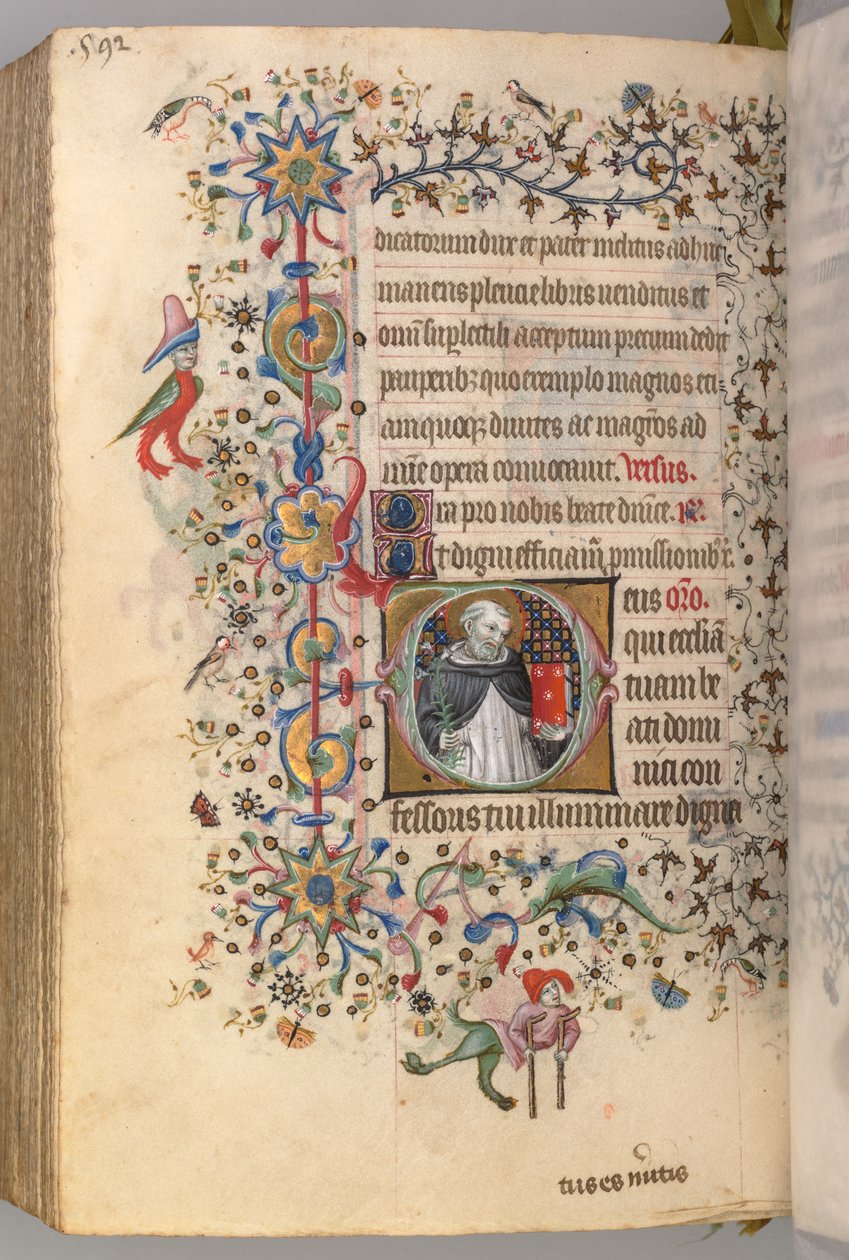 .592.
dicatorum dux et pater inclitus adhuc
manens plencie libris uenditus et
om̅i suplectili acceptum precium dedit
pauperibꝫ quo exemplo magnos eti
amquoqꝫ diuites ac magr̅os ad
init̅e opera conuocauit. versus.
Ora pro nobis beate dnīce. R.
Ut digni efficiam̅ pmissionibꝫ x.
eus or̅o.
qui eccliā
tuam be
ati domi
nici con
fessoris tui illuminare digna
tus es m̅itis